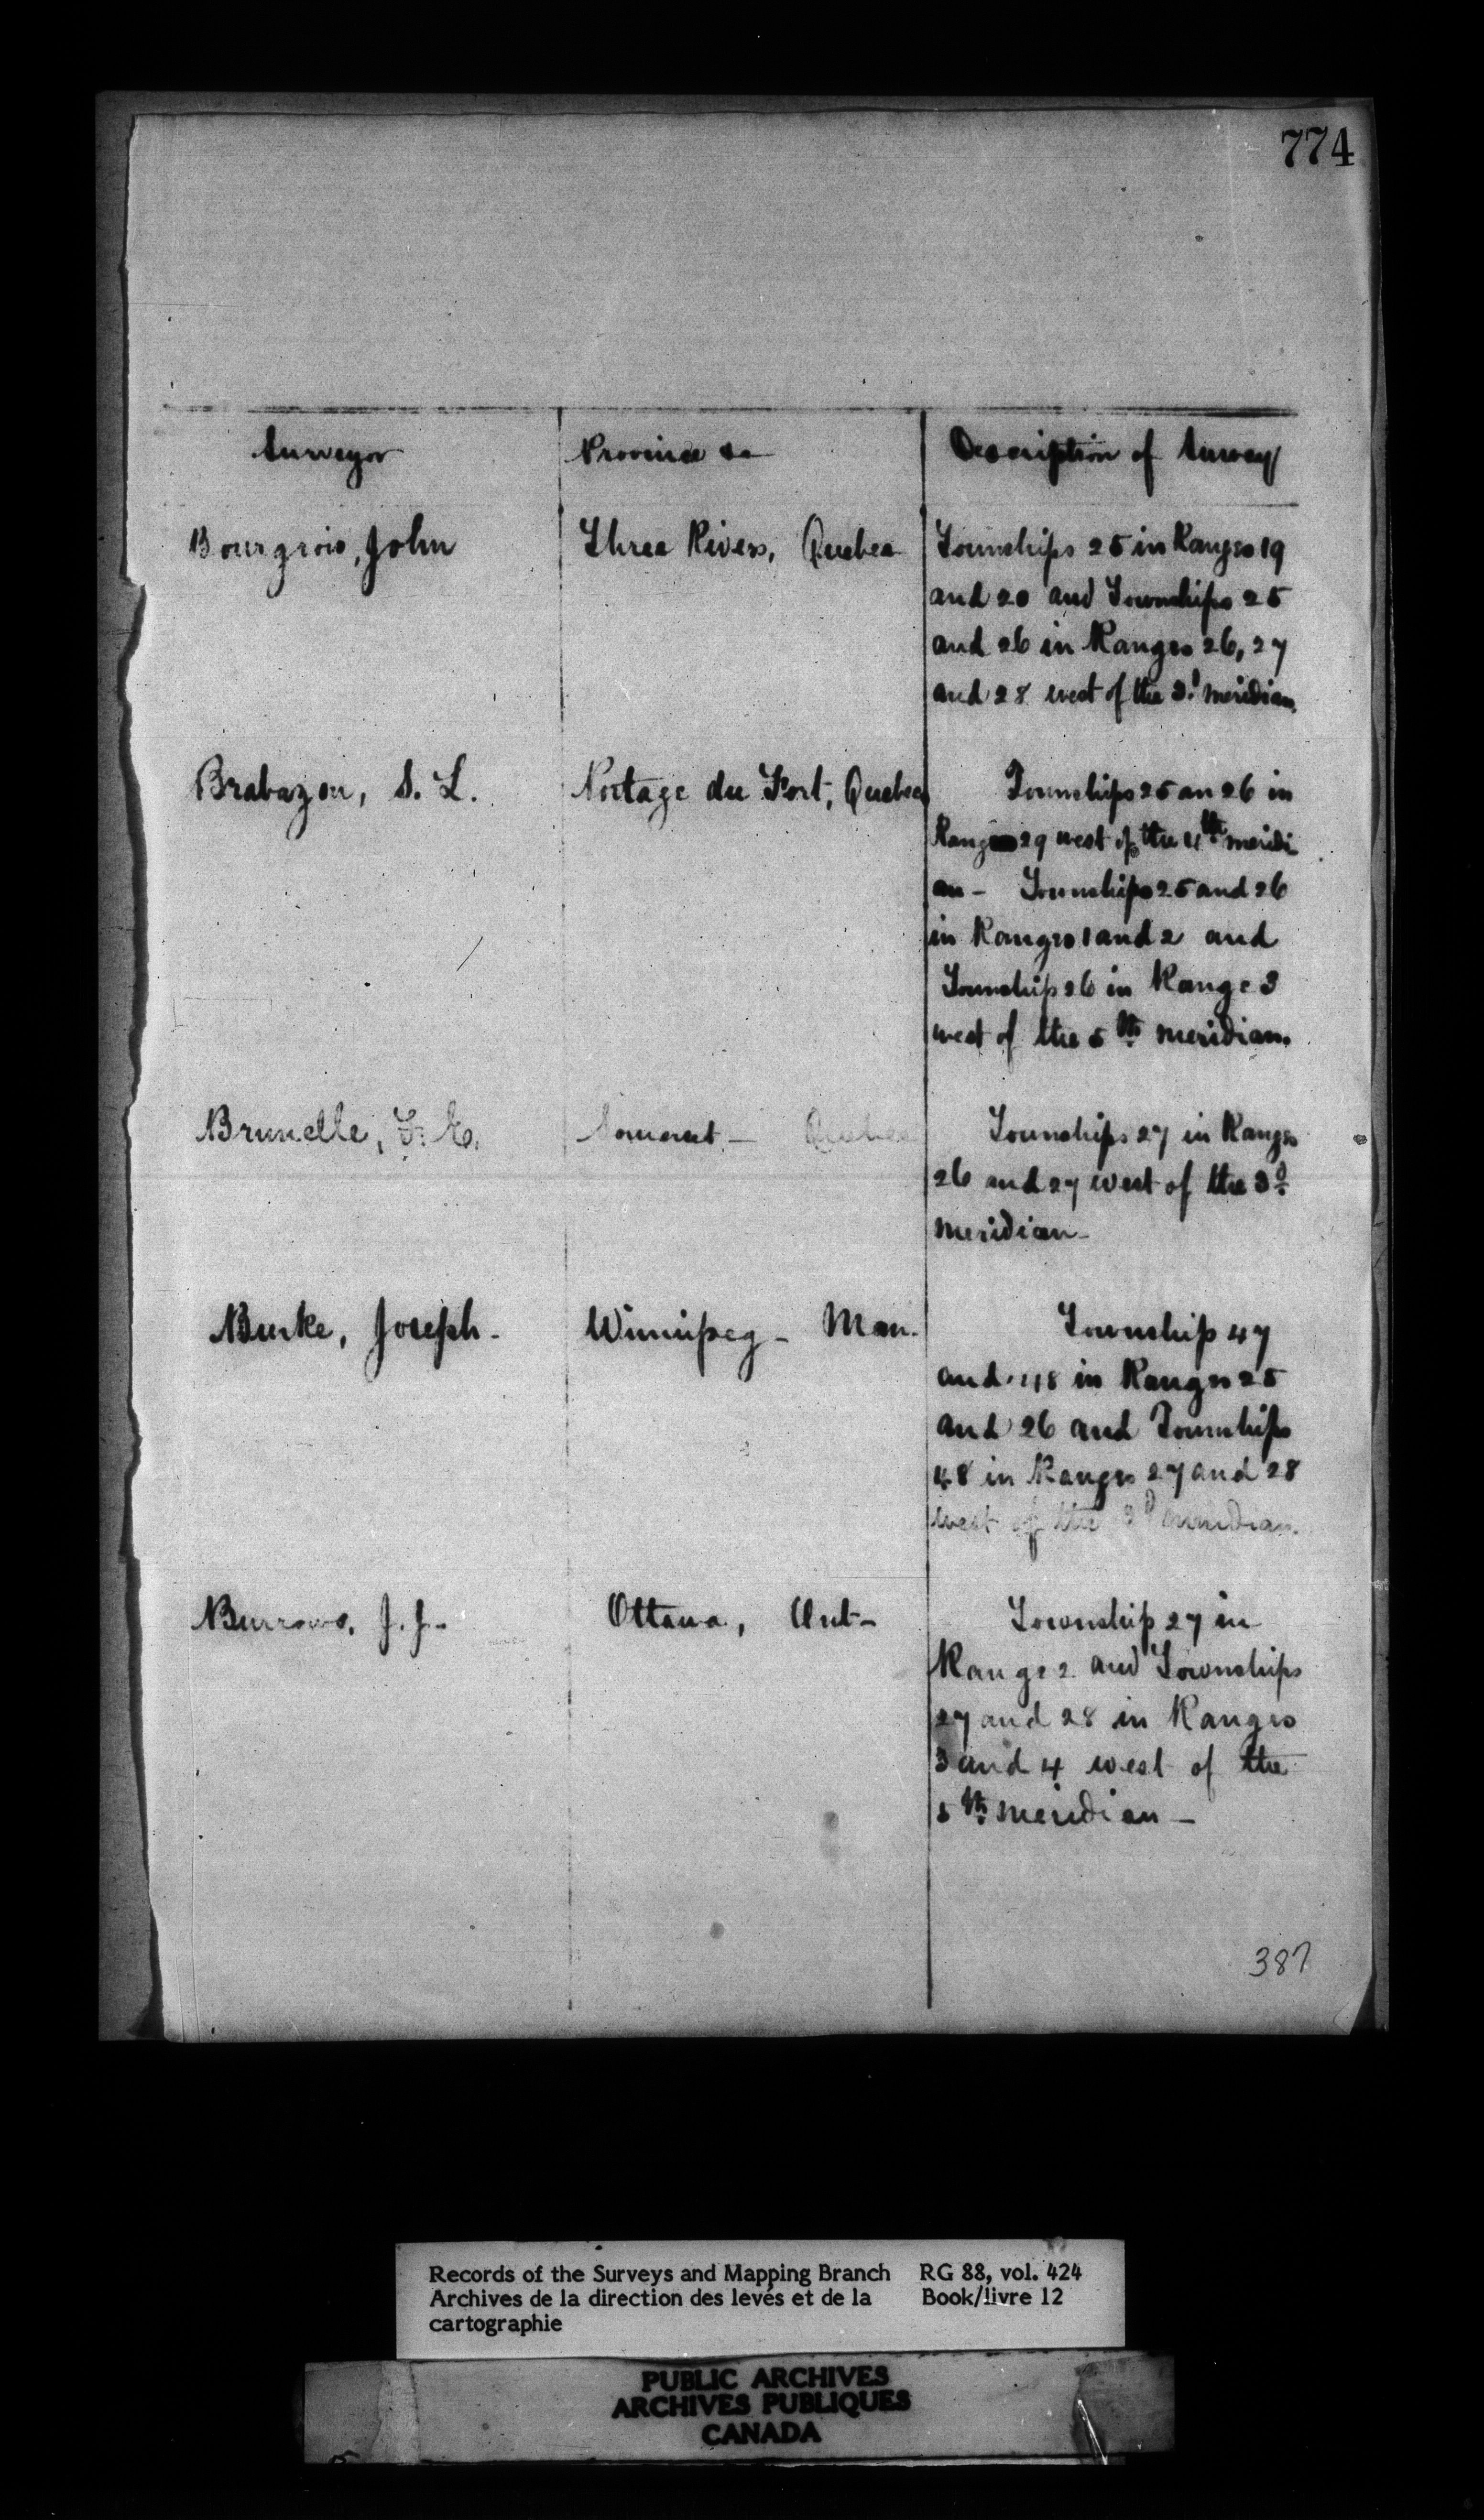 774
Surveyor Province &c Description of Survey
Bourgeois, John Three Rivers, Quebec Townships 25 in Ranges 19
and 20 and Townships 25
and 26 in Ranges 26, 27
and 28 west of the 3d meridian.
Brabazon, S. L. Portage du Fort, Quebec Townships 25 an 26 in
Range 29 west of the 4th meridi
an - Townships 25 and 26
in Ranges 1 and 2 and
Township 26 in Range 3
west of the 5th meridian.
Brunelle, Somerset - Quebec Townships 27 in Ranges
26 and 27 west of the 3d
meridian -
Burke, Joseph - Winnipeg - Man. Township 47
and 48 in Ranges 25
and 26 and Townships
48 in Ranges 27 and 28
west of the 3d meridian.
Burrows, J. J. - Ottawa, Ont - Township 27 in
Range 2 and Townships
27 and 28 in Ranges
3 and 4 west of the
5th meridian -
387
Records of the Surveys and Mapping Branch RG 88, vol. 424
Archives de la direction des levés et de la Book/livre 12
cartographie
PUBLIC ARCHIVES
ARCHIVES PUBLIQUES
CANADA